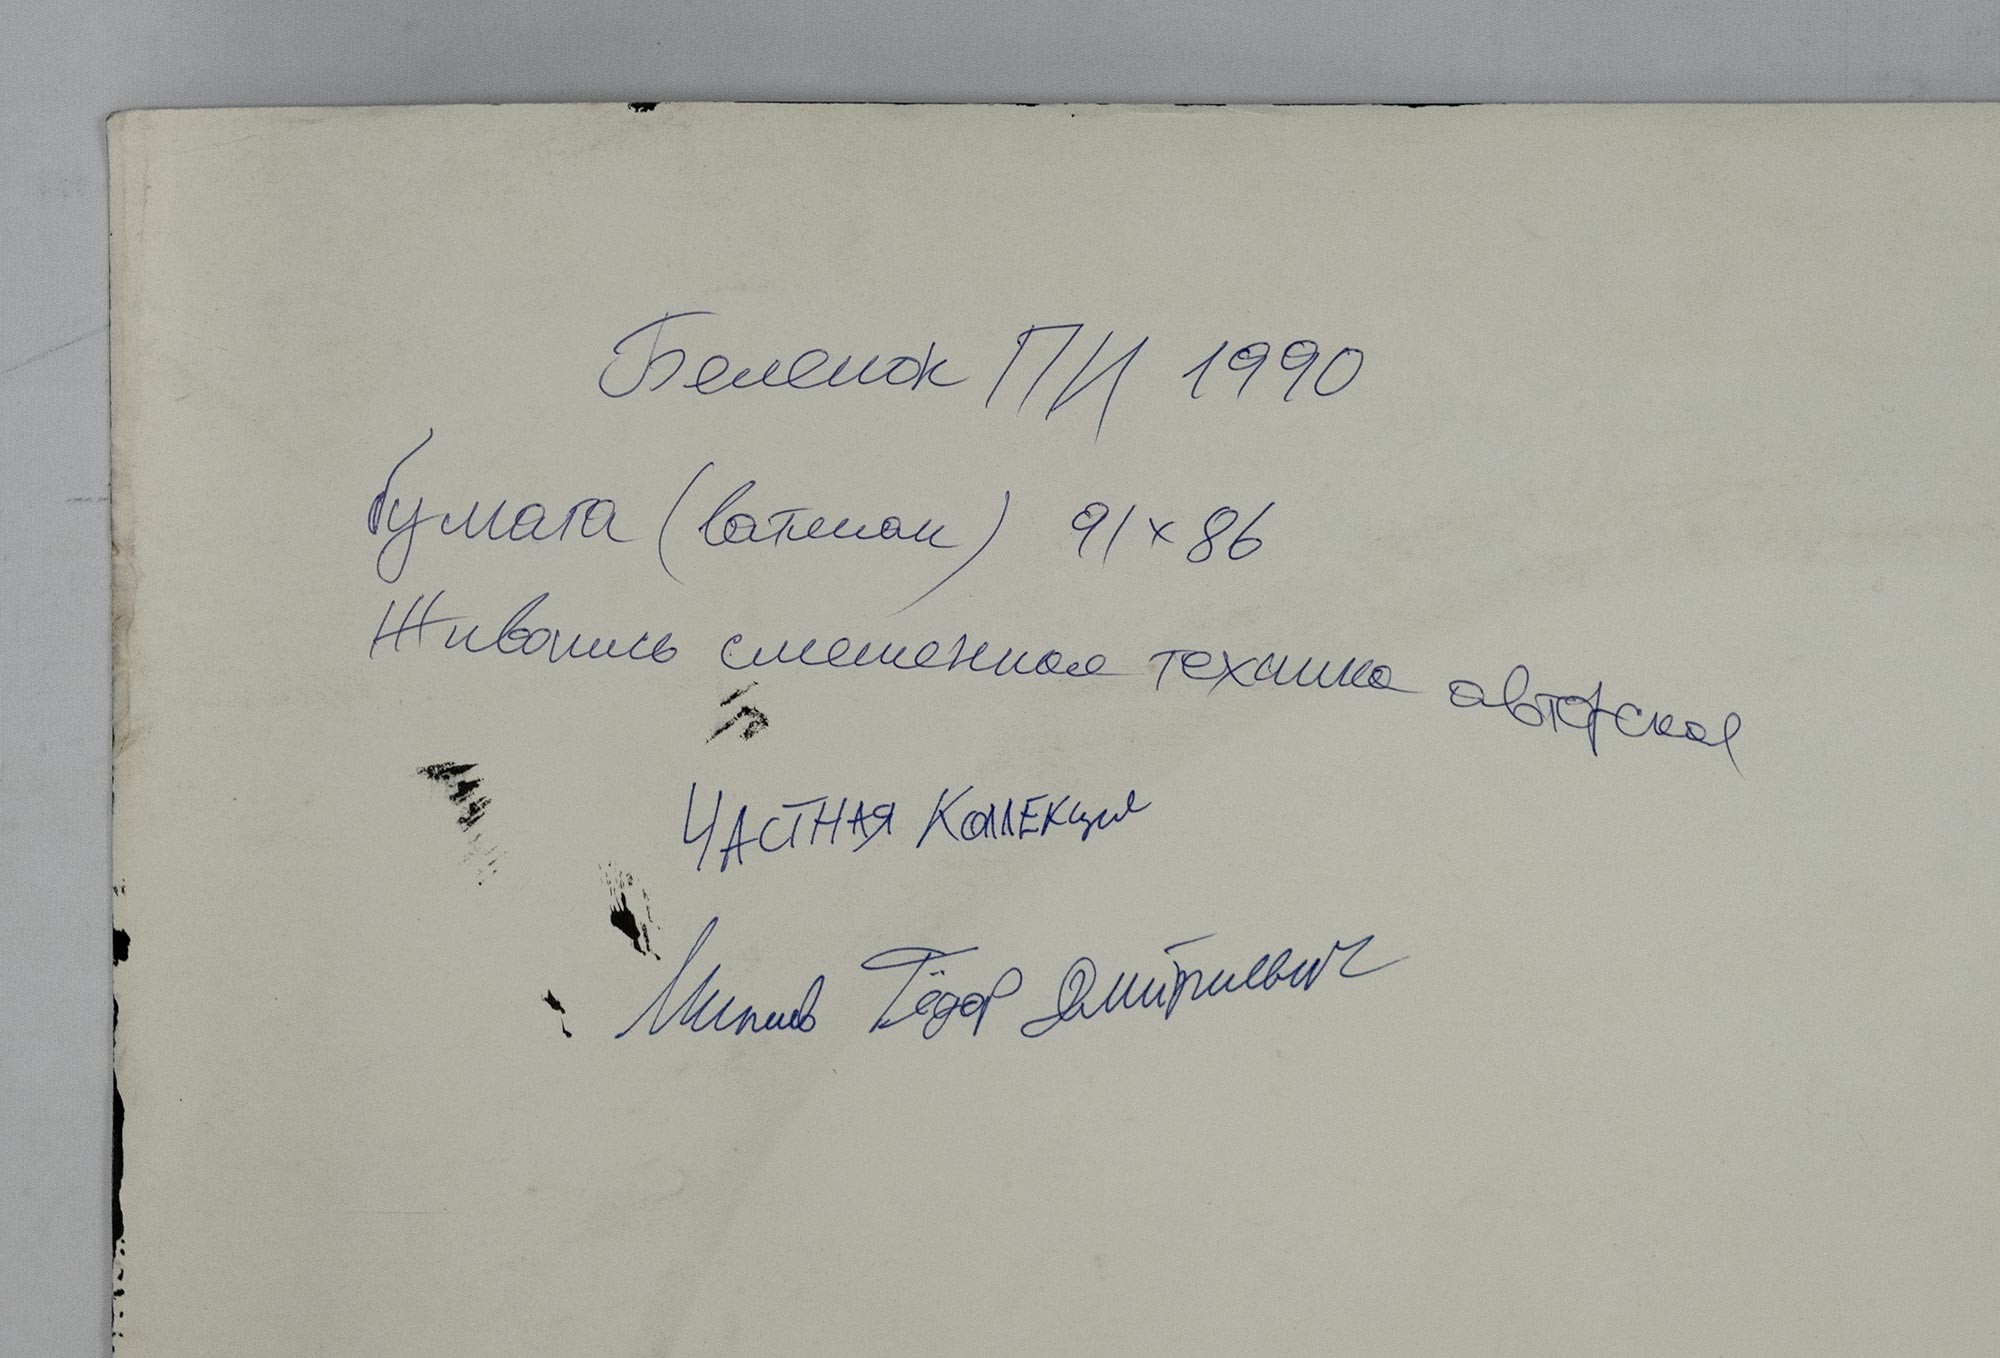 Беленок ПИ 1990
бумага (ватман) 91×86
Живопись смешенная техника авторская
ЧАСТНАЯ КОЛЛЕКЦИЯ
Фёдор Дмитриевич